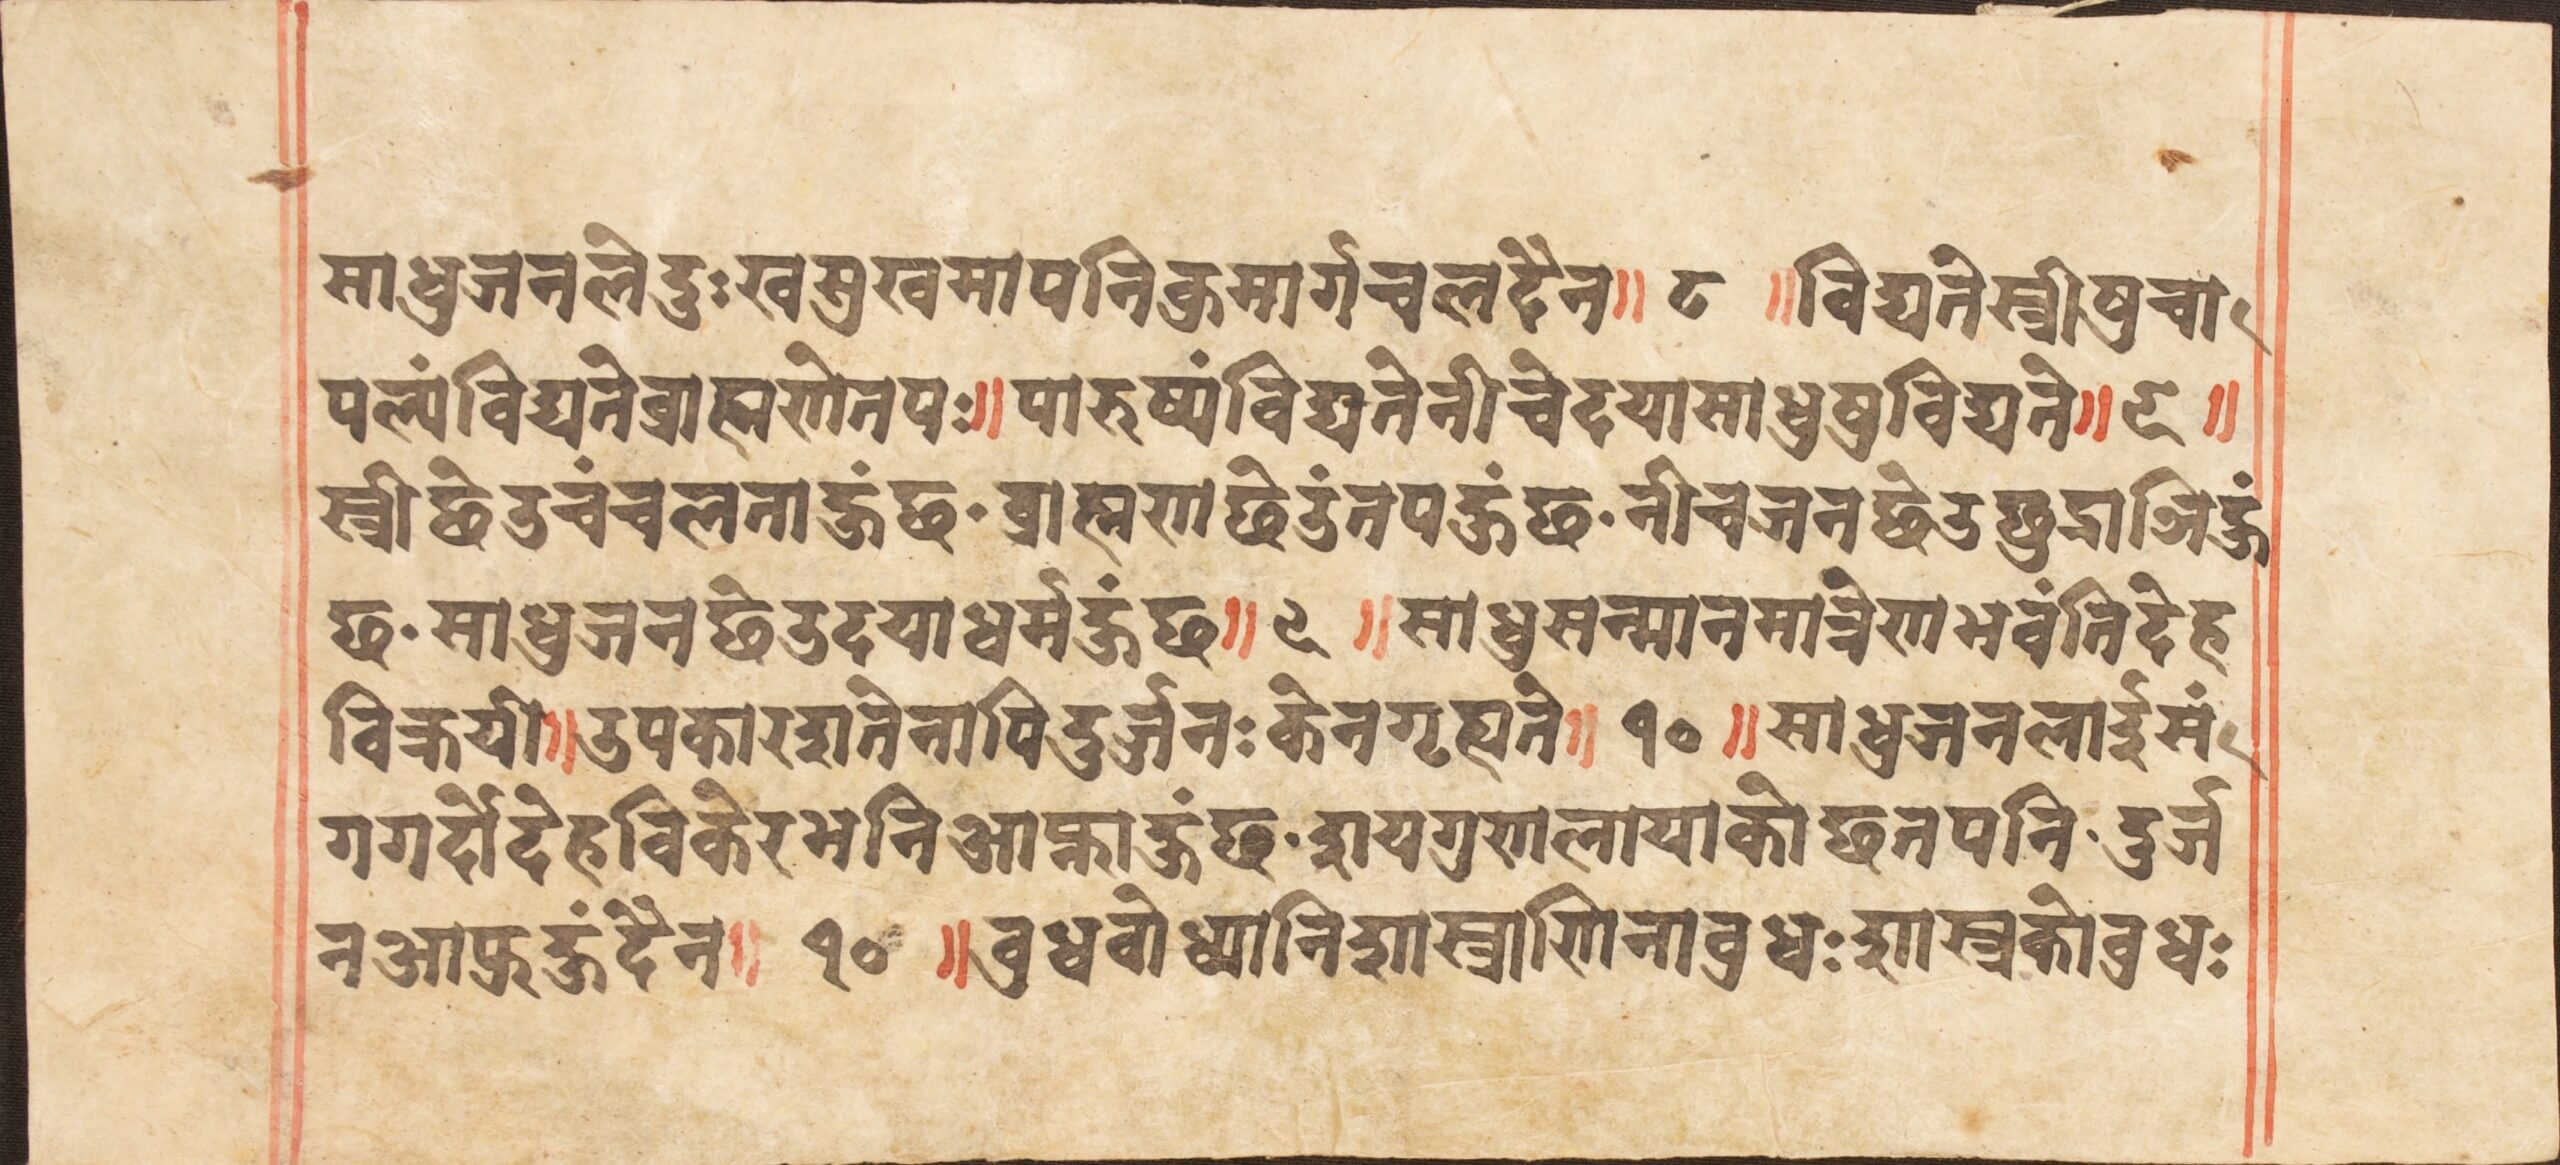 साधुजनलेदुःखसुखमापनिकुमार्गचलदैन॥ ८ ॥विद्यतेस्त्रीषुचा
पल्यंविद्यतेब्राह्मणेतपः॥पारुष्यंविद्यतेनीचेदयासाधुषुविद्यते॥ ९ ॥
स्त्रीछेउचंचलताहुंछ· ब्राह्मणछेउंतपहुंछ· नीचजनछेउछुद्राञिहुं
छ· साधुजनछेउदयाधर्महुंछ॥ ९ ॥साधुसन्मानमात्रेणभवंतिदेह
विक्रयी॥उपकारशतेनापिदुर्ज्जनःकेनगृह्यते॥ १० ॥साधुजनलाईसं
गगर्दोदेहविकेरभनिआफ्नाहुंछ· शयगुणलायाकोछतपनि· दुर्ज
नआफ्रुहुंदैन॥ १० ॥बुधबोध्यानिशास्त्राणिनाबुधःशास्त्रकोबुधः